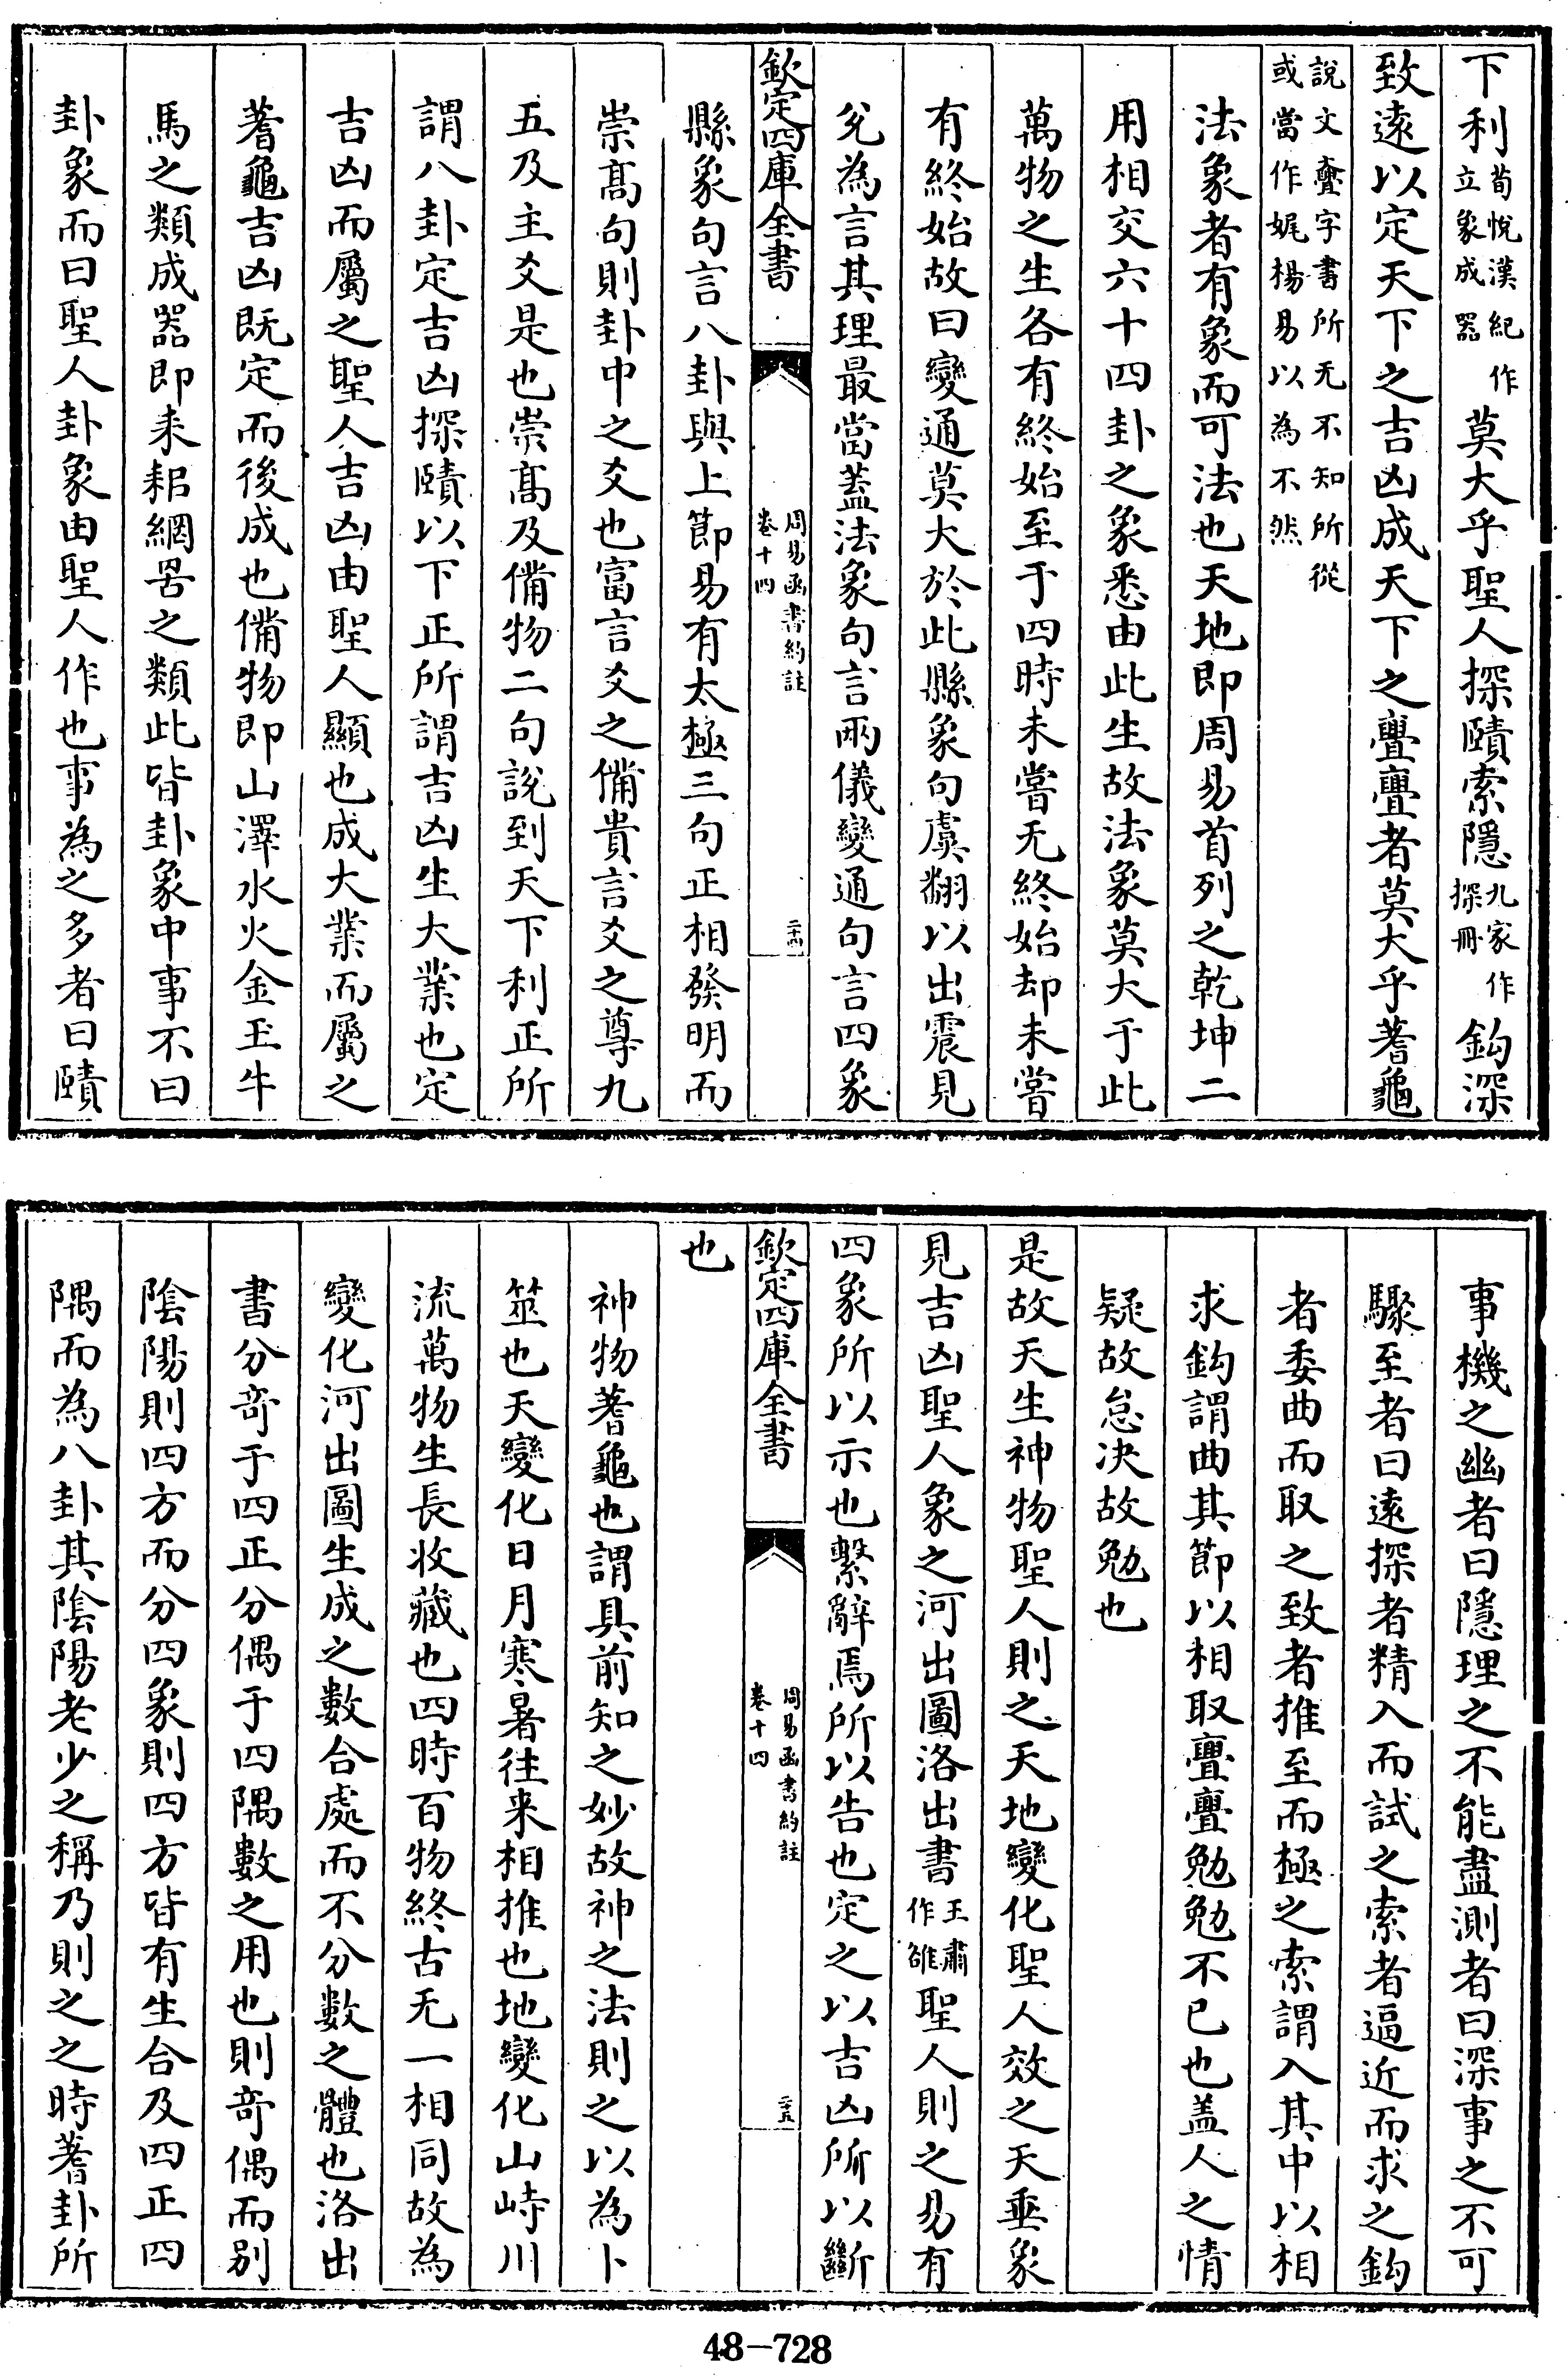 下利荀悦漢紀作立象成器莫大乎聖人探賾索隱九家作探冊鈎深
致遠以定天下之吉凶成天下之亹亹者莫大乎蓍龜
説文亹字書所无不知所從或當作娓楊易以為不然
法象者有象而可法也天地即周易首列之乾坤二
用相交六十四卦之象悉由此生故法象莫大于此
萬物之生各有終始至于四時未嘗无終始却未嘗
有終始故曰變通莫大於此縣象句虞翻以出震見
兌為言其理最當蓋法象句言兩儀變通句言四象
欽定四庫全書
周易函書約註
卷十四
二十四
縣象句言八卦與上節易有太極三句正相發明而
崇髙句則卦中之爻也富言爻之備貴言爻之尊九
五及主爻是也崇髙及備物二句説到天下利正所
謂八卦定吉凶探賾以下正所謂吉凶生大業也定
吉凶而屬之聖人吉凶由聖人顯也成大業而屬之
蓍龜吉凶既定而後成也備物即山澤水火金玉牛
馬之類成器即耒耜網罟之類此皆卦象中事不曰
卦象而曰聖人卦象由聖人作也事為之多者曰賾
事機之幽者曰隱理之不能盡測者曰深事之不可
驟至者曰遠探者精入而試之索者逼近而求之鈎
者委曲而取之致者推至而極之索謂入其中以相
求鈎謂曲其節以相取亹亹勉勉不已也盖人之情
疑故怠决故勉也
是故天生神物聖人則之天地變化聖人效之天垂象
見吉凶聖人象之河出圖洛出書王肅作雒聖人則之易有
四象所以示也繫辭焉所以告也定之以吉凶所以斷
欽定四庫全書
周易函書約註
卷十四
二十五
也
神物蓍龜也謂具前知之妙故神之法則之以為卜
筮也天變化日月寒暑往来相推也地變化山峙川
流萬物生長收藏也四時百物終古无一相同故為
變化河出圖生成之數合處而不分數之體也洛出
書分奇于四正分偶于四隅數之用也則奇偶而別
陰陽則四方而分四象則四方皆有生合及四正四
隅而為八卦其陰陽老少之稱乃則之之時蓍卦所
48-728